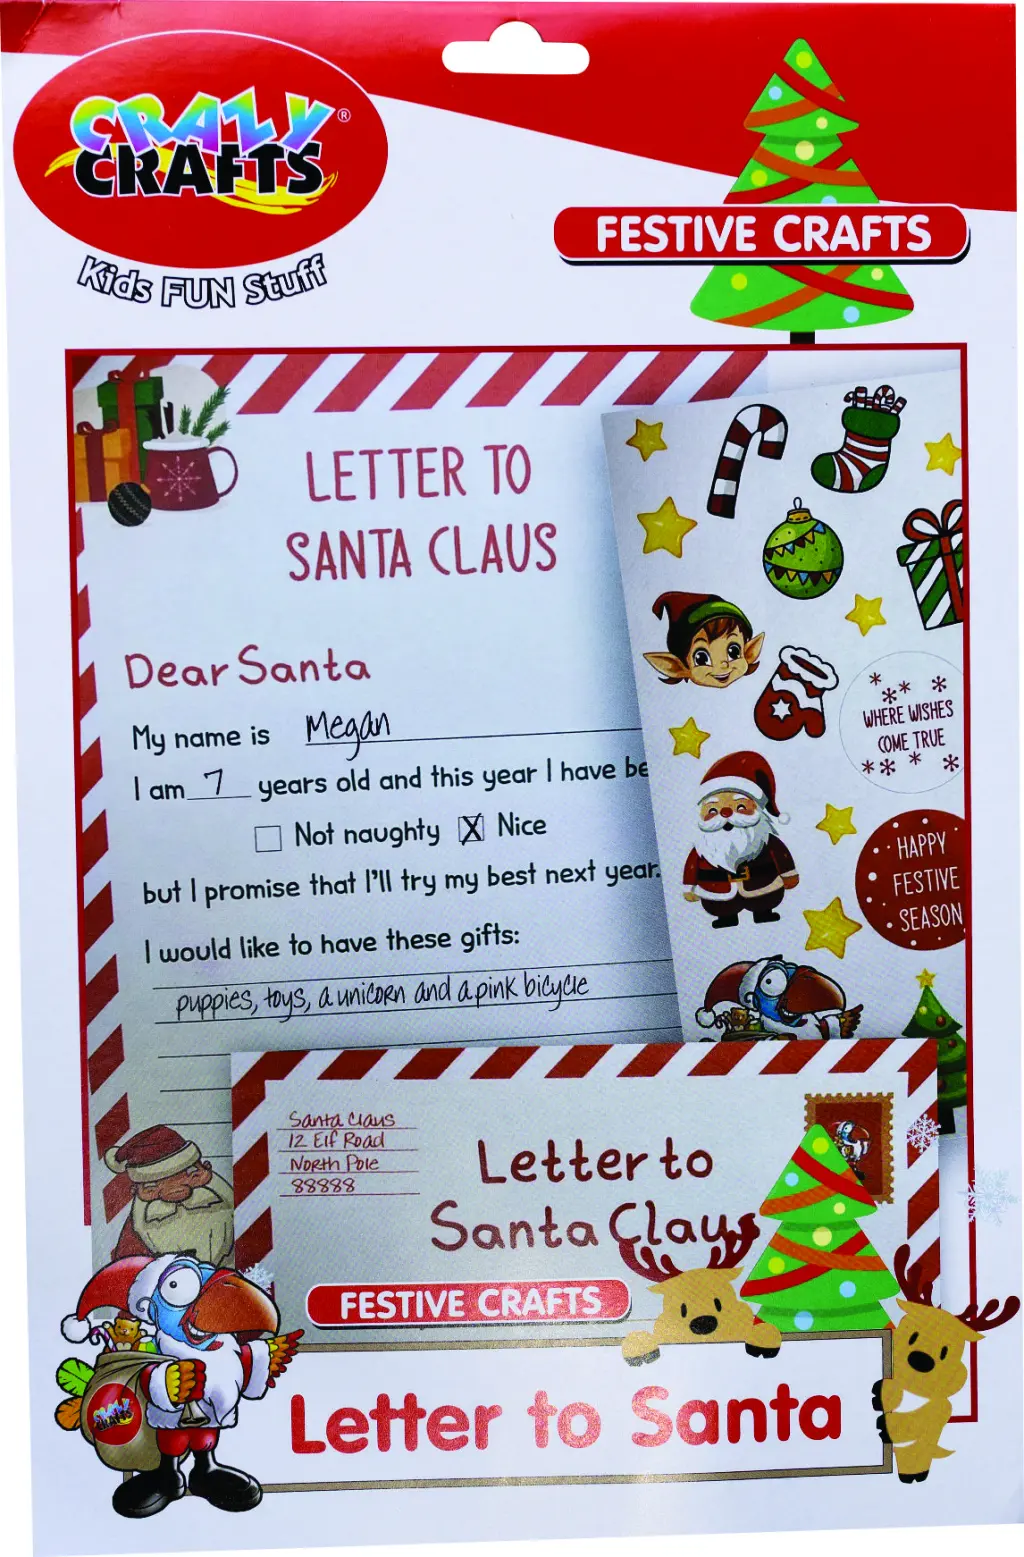 CRAZY ®
CRAFTS
Kids FUN Stuff
FESTIVE CRAFTS
LETTER TO
SANTA CLAUS
Dear Santa
My name is Megan
I am 7 years old and this year I have be
Not naughty X Nice
but I promise that I'll try my best next year.
I would like to have these gifts:
puppies, toys, a unicorn and a pink bicycle
WHERE WISHES
COME TRUE
HAPPY
FESTIVE
SEASON
Santa Claus
12 Elf Road
North Pole
88888
Letter to
Santa Claus
FESTIVE CRAFTS
Letter to Santa
CRAZY
CRAFTS